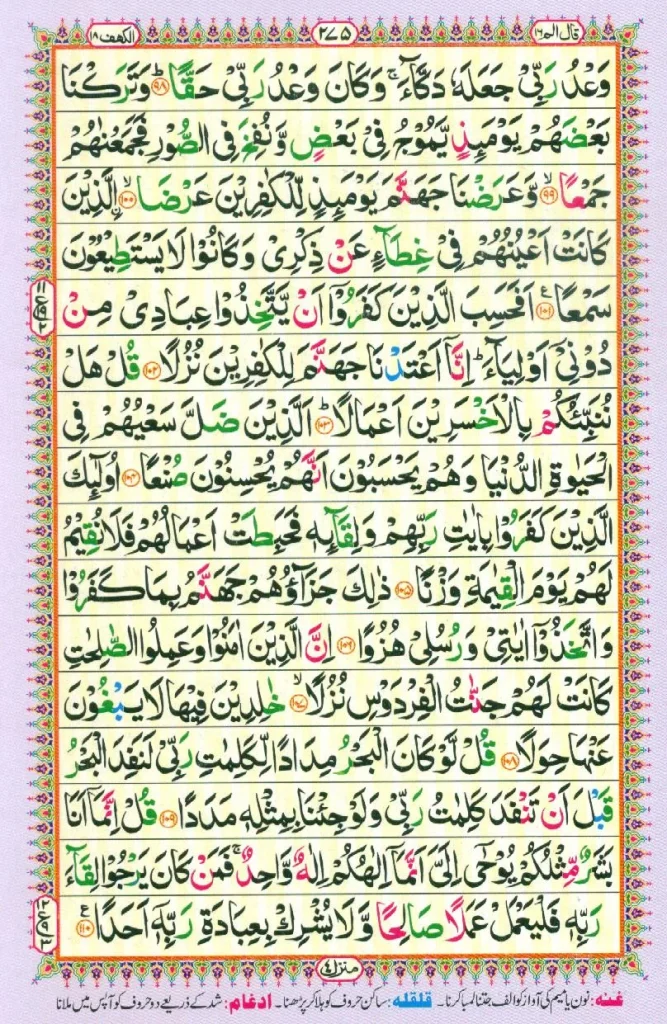 قال الم ١٦
٢٧٥
الكهف ١٨
وَعْدُ رَبِّىْ جَعَلَهٗ دَكَّآءَ ۚ وَكَانَ وَعْدُ رَبِّىْ حَقًّا ؕ ﴿۹۸﴾ وَتَرَكْنَا
بَعْضَهُمْ يَوْمَٮِٕذٍ يَّمُوْجُ فِىْ بَعْضٍ وَّنُفِخَ فِى الصُّوْرِ فَجَمَعْنٰهُمْ
جَمْعًا ۙ ﴿۹۹﴾ وَّعَرَضْنَا جَهَنَّمَ يَوْمَٮِٕذٍ لِّلْكٰفِرِيْنَ عَرْضَا ۙ ﴿۱۰۰﴾ الَّذِيْنَ
كَانَتْ اَعْيُنُهُمْ فِىْ غِطَآءٍ عَنْ ذِكْرِىْ وَكَانُوْا لَا يَسْتَطِيْعُوْنَ
سَمْعًا ﴿۱۰۱﴾ ع اَفَحَسِبَ الَّذِيْنَ كَفَرُوْۤا اَنْ يَّتَّخِذُوْا عِبَادِىْ مِنْ
دُوْنِىْۤ اَوْلِيَآءَ ؕ اِنَّاۤ اَعْتَدْنَا جَهَنَّمَ لِلْكٰفِرِيْنَ نُزُلًا ﴿۱۰۲﴾ قُلْ هَلْ
نُنَبِّئُكُمْ بِالْاَخْسَرِيْنَ اَعْمَالًا ؕ ﴿۱۰۳﴾ اَلَّذِيْنَ ضَلَّ سَعْيُهُمْ فِى
الْحَيٰوةِ الدُّنْيَا وَهُمْ يَحْسَبُوْنَ اَنَّهُمْ يُحْسِنُوْنَ صُنْعًا ﴿۱۰۴﴾ اُولٰٓٮِٕكَ
الَّذِيْنَ كَفَرُوْا بِاٰيٰتِ رَبِّهِمْ وَلِقَآٮِٕهٖ فَحَبِطَتْ اَعْمَالُهُمْ فَلَا نُقِيْمُ
لَهُمْ يَوْمَ الْقِيٰمَةِ وَزْنًا ﴿۱۰۵﴾ ذٰلِكَ جَزَآؤُهُمْ جَهَنَّمُ بِمَا كَفَرُوْا
وَاتَّخَذُوْۤا اٰيٰتِىْ وَرُسُلِىْ هُزُوًا ﴿۱۰۶﴾ اِنَّ الَّذِيْنَ اٰمَنُوْا وَعَمِلُوا الصّٰلِحٰتِ
كَانَتْ لَهُمْ جَنّٰتُ الْفِرْدَوْسِ نُزُلًا ۙ ﴿۱۰۷﴾ خٰلِدِيْنَ فِيْهَا لَا يَبْغُوْنَ
عَنْهَا حِوَلًا ﴿۱۰۸﴾ قُلْ لَّوْ كَانَ الْبَحْرُ مِدَادًا لِّكَلِمٰتِ رَبِّىْ لَنَفِدَ الْبَحْرُ
قَبْلَ اَنْ تَنْفَدَ كَلِمٰتُ رَبِّىْ وَلَوْ جِئْنَا بِمِثْلِهٖ مَدَدًا ﴿۱۰۹﴾ قُلْ اِنَّمَاۤ اَنَا
بَشَرٌ مِّثْلُكُمْ يُوْحٰٓى اِلَىَّ اَنَّمَاۤ اِلٰهُكُمْ اِلٰهٌ وَّاحِدٌ ۚ فَمَنْ كَانَ يَرْجُوْا لِقَآءَ
رَبِّهٖ فَلْيَعْمَلْ عَمَلًا صَالِحًا وَّلَا يُشْرِكْ بِعِبَادَةِ رَبِّهٖۤ اَحَدًا ﴿۱۱۰﴾ ع
منزل ٤
غنہ: نون یا میم کی آواز کو الف جتنا لمبا کرنا۔ قلقلہ: ساکن حروف کو ہلا کر پڑھنا۔ ادغام: شد کے ذریعے دو حروف کو آپس میں ملانا